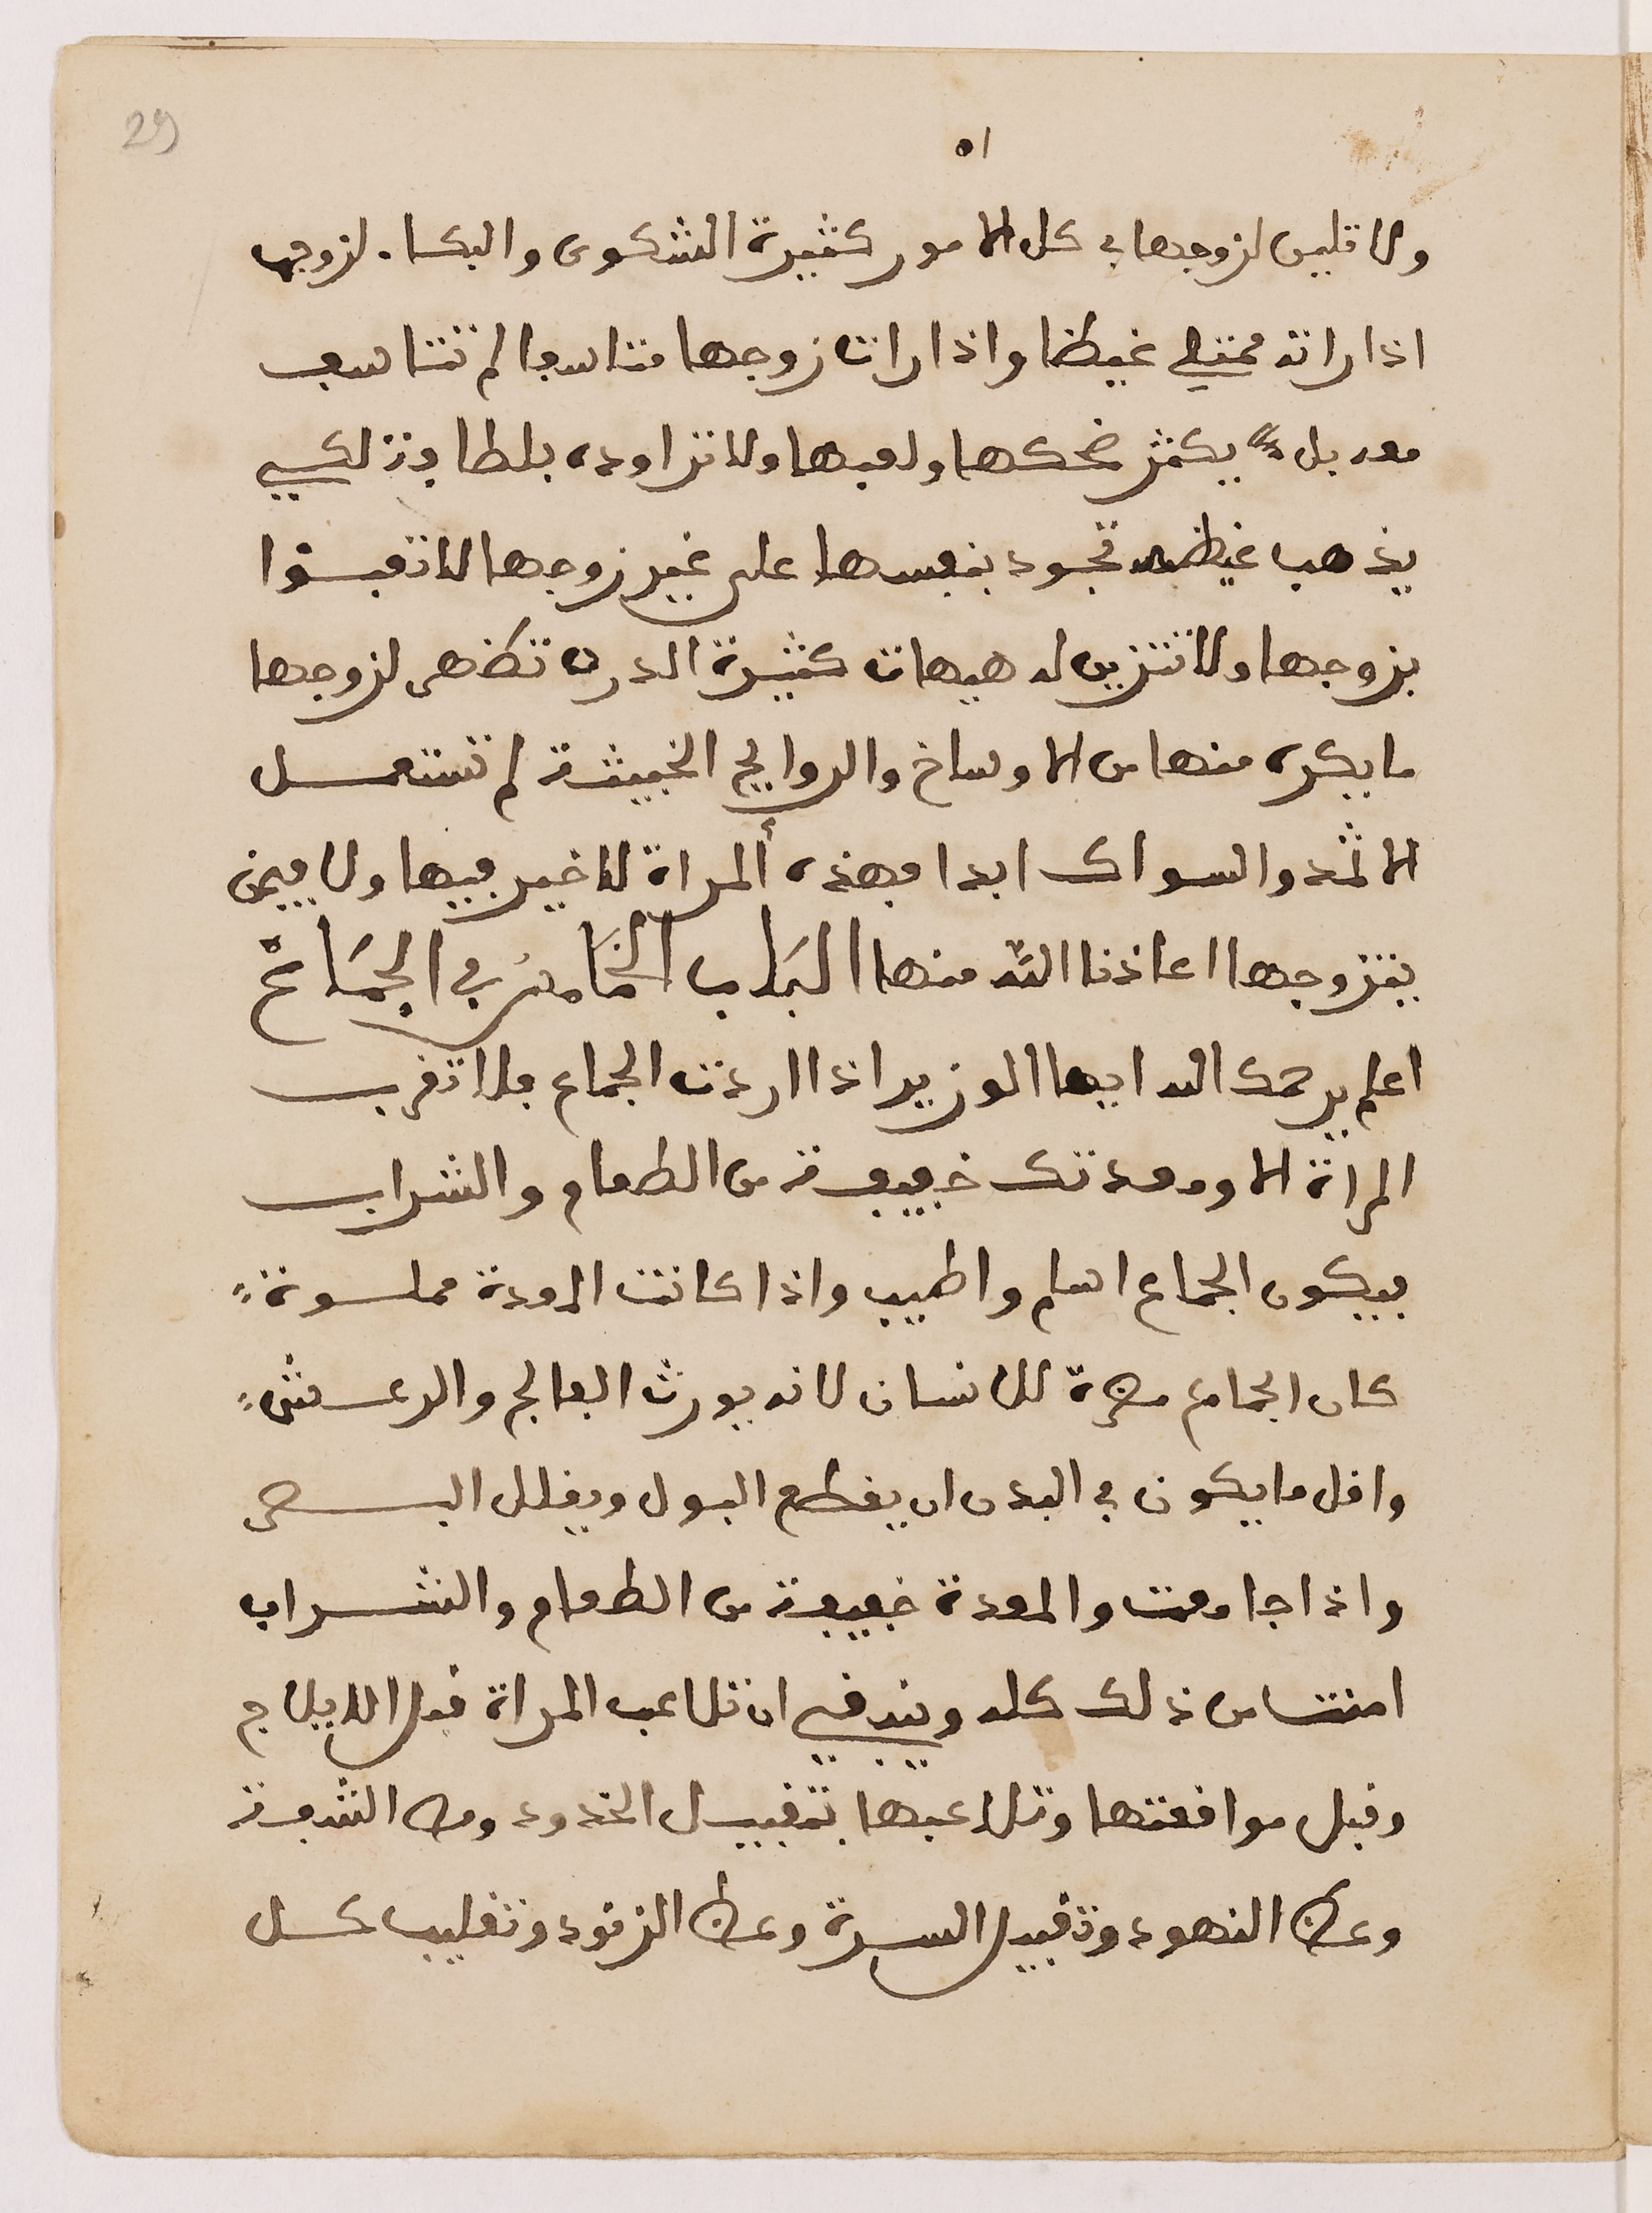 29
٥١
ولا تلين لزوجها في كل الامور كثيرة الشكوى والبكاء لزوجها
اذا راته ممتلي غيظا واذا رات زوجها متاسفا لم تتاسف
معه بل يكثر ضحكها ولعبها ولا تراوده بلطافة لكي
يذهب غيظه تجود بنفسها على غير زوجها لا تعبئوا
بزوجها ولا تتزين له هيهات كثيرة الدرن تظهر لزوجها
ما يكره منها من الاوساخ والروايح الخبيثة لم تستعمل
الاثمد والسواك ابدا فهذه المراة لا خير فيها ولا فيمن
يتزوجها اعاذنا الله منها الباب الخامس في الجماع
اعلم يرحمك الله ايها الوزير اذا اردت الجماع فلا تقرب
المراة الا ومعدتك خفيفة من الطعام والشراب
فيكون الجماع اسلم واطيب واذا كانت المعدة مملوءة
كان الجماع مضرة للانسان لانه يورث الفالج والرعش
واقل ما يكون في البدن ان يقطع البول ويقلل البصر
واذا جامعت والمعدة خفيفة من الطعام والشراب
امنت من ذلك كله وينبغي ان تلاعب المراة قبل الايلاج
وقبل مواقعتها وتلاعبها بتقبيل الخدود ومص الشفة
وعض النهود وتقبيل السرة وعض الزنود وتقليب كل